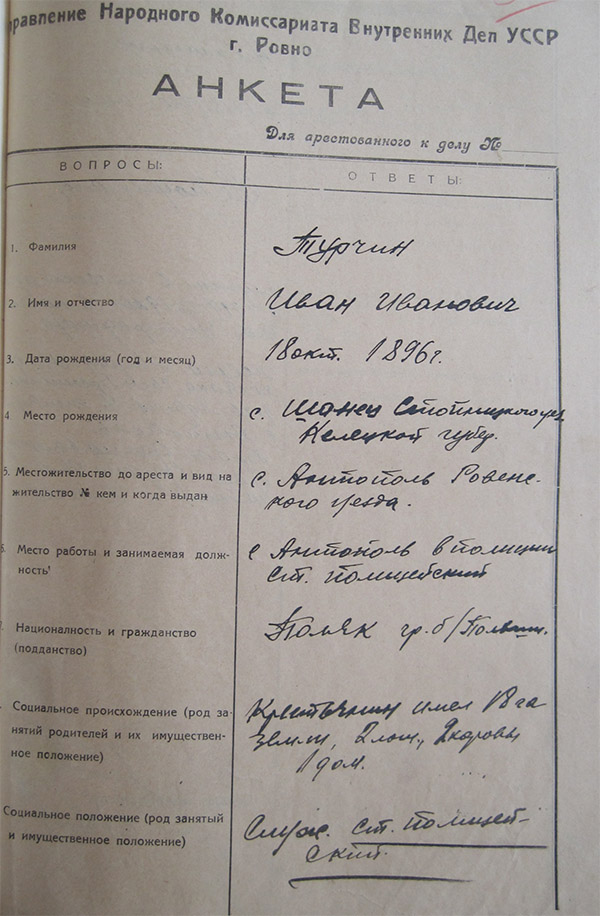 правление Народного Комиссариата Внутренних Дел УССР
г. Ровно
АНКЕТА
Для арестованного к делу №
ВОПРОСЫ:
ОТВЕТЫ:
1. Фамилия
Турчин
2. Имя и отчество
Иван Иванович
3. Дата рождения (год и месяц)
18 окт. 1896 г.
4 Место рождения
с. Шанец Стопницкого уез
Келецкой губер.
5. Местожительство до ареста и вид на
жительство № кем и когда выдан
с. Антополь Ровенс-
кого уезда.
6. Место работы и занимаемая долж-
ность
с Антополь в полиции
ст. полицейский
Националность и гражданство
(подданство)
Поляк гр. б/Польши.
Социальное происхождение (род за-
нятий родителей и их имуществен-
ное положение)
Крестьянин имел 18 га
земли, 2 лош., 2 коровы
1 дом.
Социальное положение (род занятый
и имущественное положение)
Служ. ст. полицей-
ский.